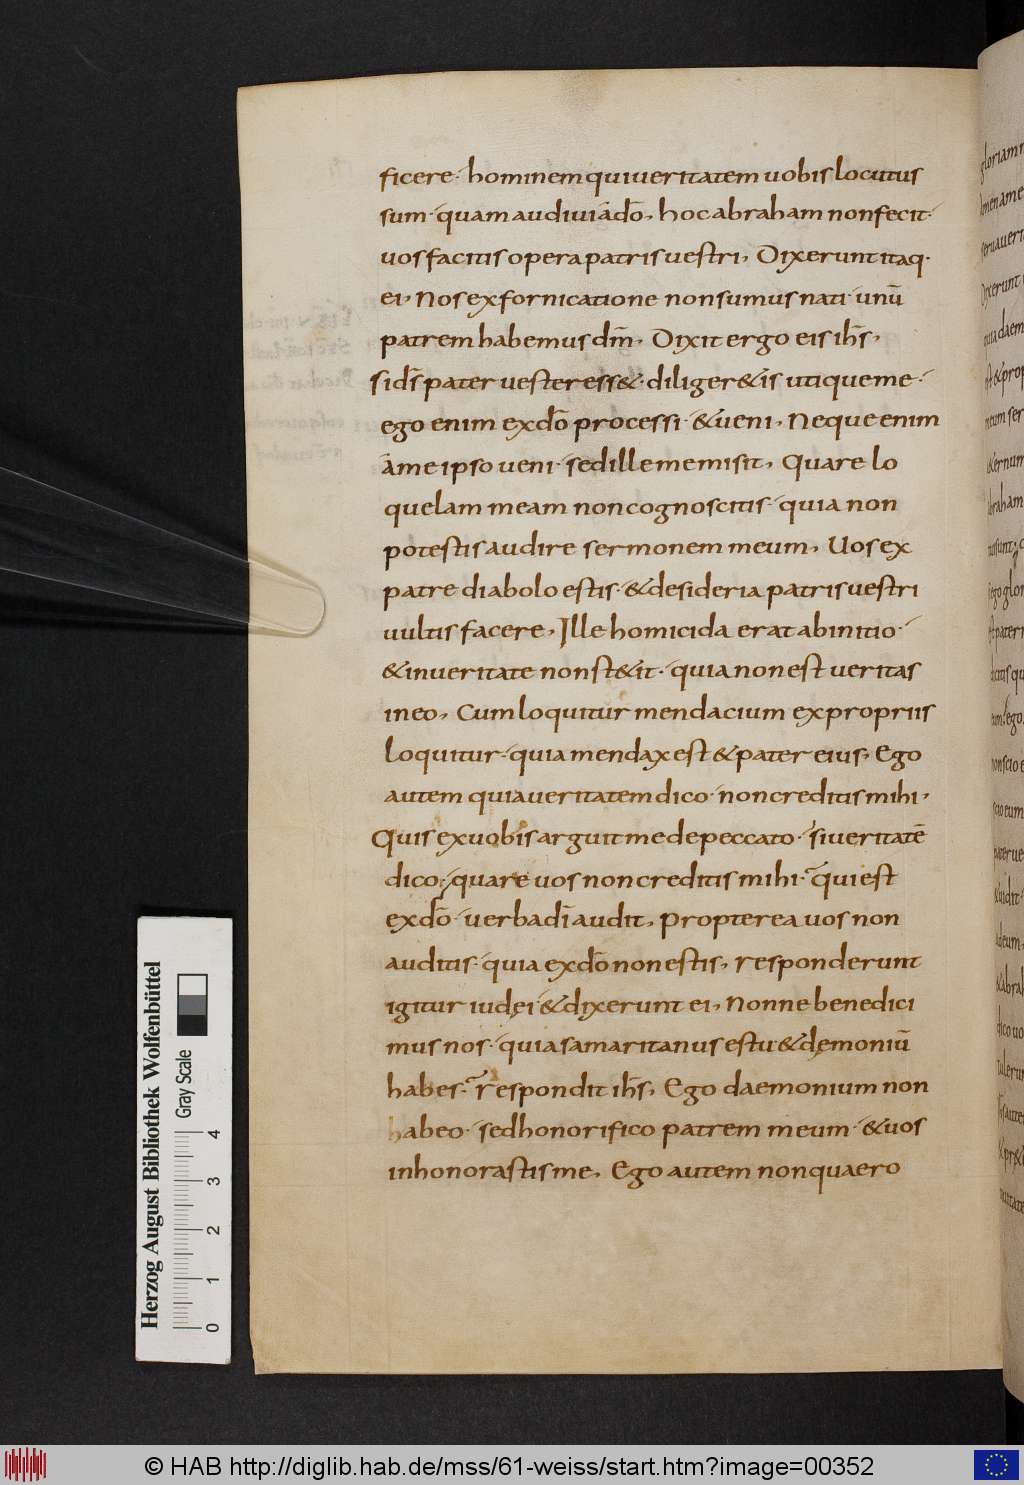 ficere· hominem qui veritatem uobis locutus
sum· quam audivi a dō, hoc abraham non fecit·
uos facitis opera patris uestri, Dixerunt itaq·
ei, Nos ex fornicatione non sumus nati· unū
patrem habemus dm̄, Dixit ergo eis ihs̄,
si ds̄ pater uester ess&· diliger& is utique me·
ego enim ex dō processi· & ueni, Neque enim
a me ipso ueni· sed ille me misit, Quare lo
quelam meam non cognoscitis· quia non
potestis audire sermonem meum, Uos ex
patre diabolo estis· & desideria patris uestri
uultis facere, Ille homicida erat ab initio·
& in ueritate non st&it· quia non est veritas
in eo, Cum loquitur mendacium ex propriis
loquitur· quia mendax est & pater eius, Ego
autem quia ueritatem dico· non creditis mihi,
Quis ex uobis arguit me de peccato· si ueritatē
dico· quare uos non creditis mihi· qui est
ex dō· uerba dī audit, propterea uos non
auditis· quia ex dō non estis, responderunt
igitur iudęi & dixerunt ei, Nonne benedici
mus nos· quia samaritanus es tu· & dęmoniū
habes· respondit ihs̄, Ego daemonium non
habeo· sed honorifico patrem meum· & uos
inhonorastis me, Ego autem non quaero
gloriam
Herzog August Bibliothek Wolfenbüttel
Gray Scale
0 1 2 3 4
© HAB http://diglib.hab.de/mss/61-weiss/start.htm?image=00352